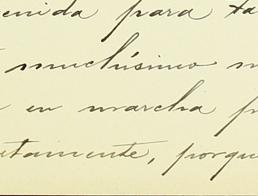 enida para ta
muchísimo m
en marcha p
tamente, porque